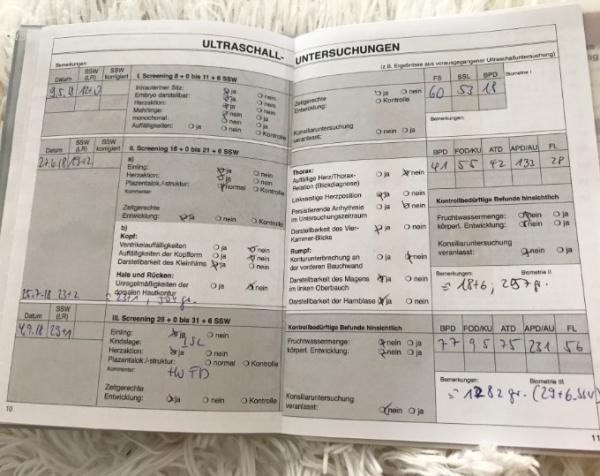 ULTRASCHALL- UNTERSUCHUNGEN
Bemerkungen:
(z.B. Ergebnisse aus vorausgegangener Ultraschalluntersuchung)
Datum SSW (LR) SSW korrigiert
I. Screening 8 + 0 bis 11 + 6 SSW
Intrauteriner Sitz: ja nein
Embryo darstellbar: ja nein
Herzaktion: ja nein
Mehrlinge: ja nein
monochorial: ja nein
Auffälligkeiten: ja nein Kontrolle
Zeitgerechte Entwicklung: ja nein Kontrolle
Konsiliaruntersuchung veranlasst: nein ja
FS SSL BPD Biometrie I
60 53 18
Bemerkungen:
Datum SSW (LR) SSW korrigiert
27.6.18 19+2
II. Screening 18 + 0 bis 21 + 6 SSW
a)
Einling: ja nein
Herzaktion: ja nein
Plazentalok./-struktur: normal Kontrolle
Kommentar:
Zeitgerechte
Entwicklung: ja nein Kontrolle
b)
Kopf:
Ventrikelauffälligkeiten ja nein
Auffälligkeiten der Kopfform ja nein
Darstellbarkeit des Kleinhirns ja nein
Hals und Rücken:
Unregelmäßigkeiten der dorsalen Hautkontur ja nein
25.7.18 23+2
Thorax:
Auffällige Herz/Thorax-Relation (Blickdiagnose) ja nein
Linksseitige Herzposition ja nein
Persistierende Arrhythmie im Untersuchungszeitraum ja nein
Darstellbarkeit des Vier-Kammer-Blicks ja nein
Rumpf:
Konturunterbrechung an der vorderen Bauchwand ja nein
Darstellbarkeit des Magens im linken Oberbauch ja nein
Darstellbarkeit der Harnblase ja nein
BPD FOD/KU ATD APD/AU FL
41 55 42 133 28
Kontrollbedürftige Befunde hinsichtlich
Fruchtwassermenge: nein ja
körperl. Entwicklung: nein ja
Konsiliaruntersuchung veranlasst: nein ja
Bemerkungen: Biometrie II
= 18+6, 257 gr.
Datum SSW (LR) SSW korrigiert
4.9.18 29+1
III. Screening 28 + 0 bis 31 + 6 SSW
Einling: ja nein
Kindslage: I SL
Herzaktion: ja nein
Plazentalok./-struktur: normal Kontrolle
Kommentar: HW
Zeitgerechte
Entwicklung: ja nein Kontrolle
Kontrollbedürftige Befunde hinsichtlich
Fruchtwassermenge: nein ja
körperl. Entwicklung: nein ja
Konsiliaruntersuchung
veranlasst: nein ja
BPD FOD/KU ATD APD/AU FL
77 95 75 231 56
Bemerkungen: Biometrie III
= 1282 gr. (29+6 SSW)
10
11